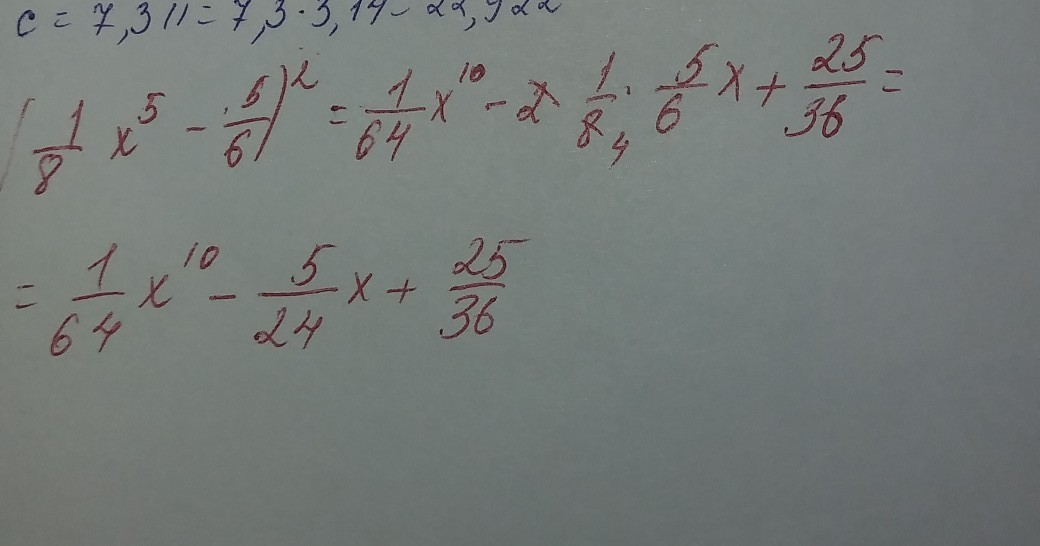 c = 7,3π = 7,3 · 3,14 = 22,922
(1/8 x^5 - 5/6)^2 = 1/64 x^10 - 2 · 1/8 4 · 5/6 x + 25/36 =
= 1/64 x^10 - 5/24 x + 25/36